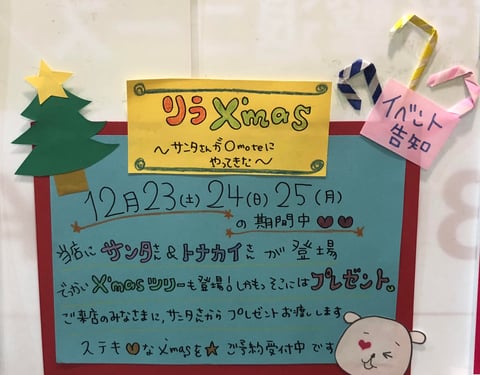 リラ X'mas
〜サンタさんがOmoteに
やってきた〜
イベント
告知
12月23(土)24(日)25(月)
の期間中
当店にサンタさん&トナカイさんが登場
でっかいX'masツリーも登場!しかもそこにはプレゼント
ご来店のみなさまに、サンタさんからプレゼントお渡しします
ステキなX'masを★ご予約受付中です